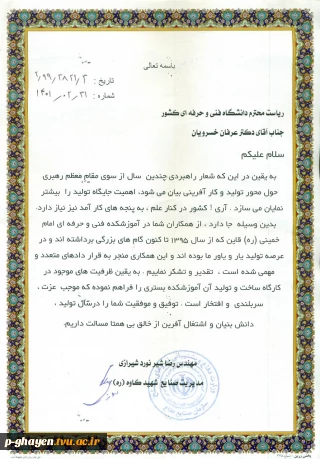 باسمه تعالی
تاریخ : ۲/۹۹/۳۸۲۱/۳
شماره : ۱۴۰۱/۰۲/۳۱
ریاست محترم دانشگاه فنی و حرفه ای کشور
جناب آقای دکتر عرفان خسرویان
سلام علیکم
به یقین در این که شعار راهبردی چندین سال از سوی مقام معظم رهبری
حول محور تولید و کار آفرینی بیان می شود، اهمیت جایگاه تولید را بیشتر
نمایان می سازد . آری ! کشور در کنار علم ، به پنجه های کار آمد نیز نیاز دارد.
بدین وسیله جا دارد ، از همکاران شما در آموزشکده فنی و حرفه ای امام
خمینی (ره) قاین که از سال ۱۳۹۵ تاکنون گام های بزرگی برداشته اند و در
عرصه تولید یار و یاور ما بوده اند و این همکاری منجر به قرار دادهای متعدد و
مهمی شده است ، تقدیر و تشکر نماییم . به یقین ظرفیت های موجود در
کارگاه ساخت و تولید آن آموزشکده بستری را فراهم نموده که موجب عزت ،
سربلندی و افتخار است . توفیق و موفقیت شما را درسال تولید ،
دانش بنیان و اشتغال آفرین از خالق بی همتا مسالت داریم.
مهندس رضا شیر نورد شیرازی
مدیریت صنایع شهید کاوه (ره)
p-ghayen.tvu.ac.ir